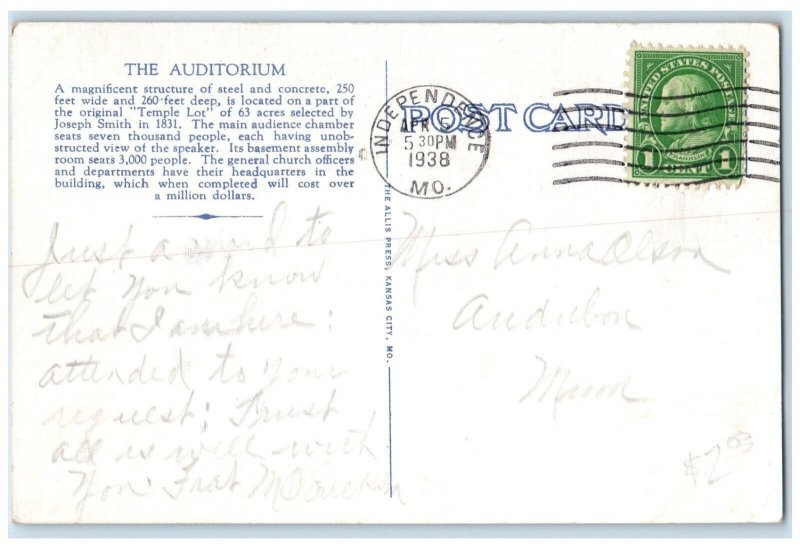 THE AUDITORIUM
A magnificent structure of steel and concrete, 250
feet wide and 260 feet deep, is located on a part of
the original "Temple Lot" of 63 acres selected by
Joseph Smith in 1831. The main audience chamber
seats seven thousand people, each having unob-
structed view of the speaker. Its basement assembly
room seats 3,000 people. The general church officers
and departments have their headquarters in the
building, which when completed will cost over
a million dollars.
Just a word to
let you know
that I am here:
attended to your
request; Trust
all is well with
you.
THE ALLIS PRESS, KANSAS CITY, MO.
POST CARD
INDEPENDENCE
APR 5
5 30PM
1938
MO.
UNITED STATES POSTAGE
FRANKLIN
1 CENT 1
Miss Anna Olson
Audubon
Minn